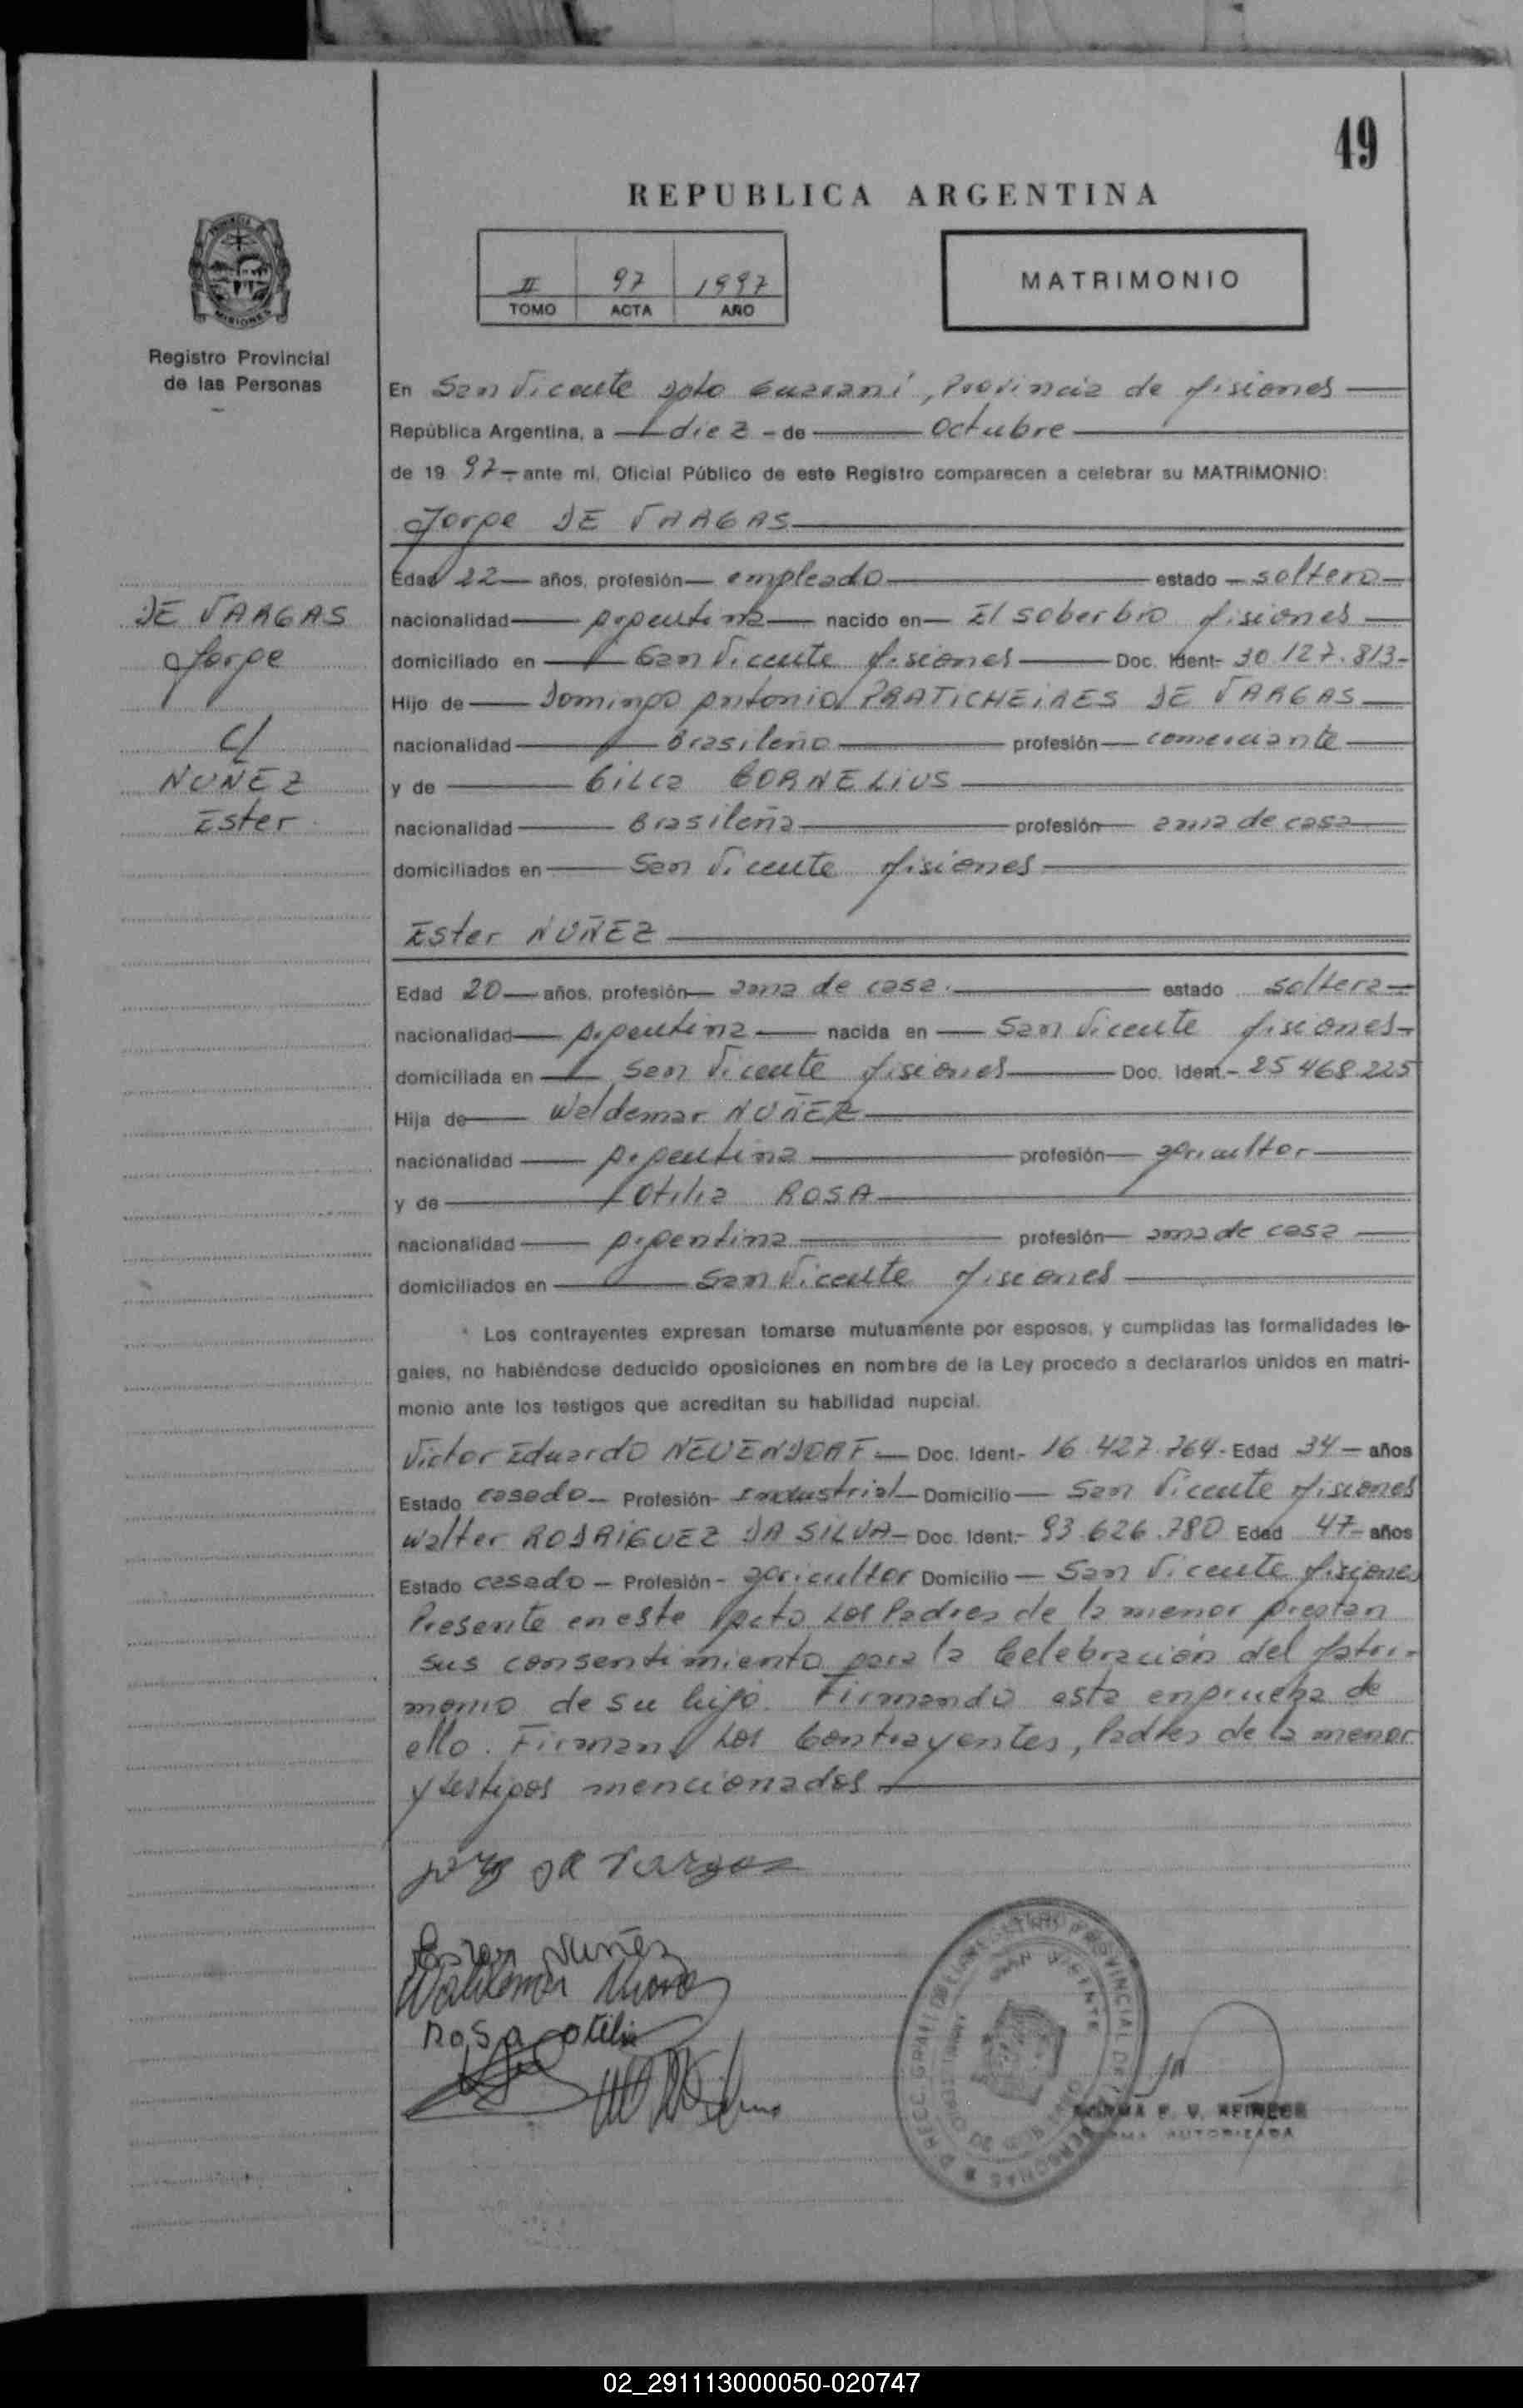 49
REPUBLICA ARGENTINA
II 97 1997
TOMO ACTA AÑO
MATRIMONIO
PROVINCIA DE
MISIONES
Registro Provincial
de las Personas
En San Vicente Dpto Guaraní, Provincia de Misiones
República Argentina, a diez - de Octubre
de 19 97 - ante mí, Oficial Público de este Registro comparecen a celebrar su MATRIMONIO:
Jorge DE VARGAS
Edad 22 años, profesión empleado estado soltero
nacionalidad Argentina nacido en El Soberbio Misiones
domiciliado en San Vicente Misiones Doc. Ident- 30.127.813-
Hijo de Domingo Antonio PRATICHEIRES DE VARGAS
nacionalidad Brasileño profesión comerciante
y de Gilca CORNELIUS
nacionalidad Brasileña profesión ama de casa
domiciliados en San Vicente Misiones
DE VARGAS
Jorge
C/
NUÑEZ
Ester
Ester NUÑEZ
Edad 20 años, profesión ama de casa. estado soltera
nacionalidad Argentina nacida en San Vicente Misiones-
domiciliada en San Vicente Misiones Doc. Ident.- 25 468.225
Hija de Waldemar NUÑEZ
nacionalidad Argentina profesión agricultor
y de Otilia ROSA
nacionalidad Argentina profesión ama de casa
domiciliados en San Vicente Misiones
Los contrayentes expresan tomarse mutuamente por esposos, y cumplidas las formalidades le-
gales, no habiéndose deducido oposiciones en nombre de la Ley procedo a declararlos unidos en matri-
monio ante los testigos que acreditan su habilidad nupcial.
Victor Eduardo NEUENDORF Doc. Ident- 16.427.764- Edad 34 años
Estado casado Profesión- Industrial Domicilio San Vicente Misiones
Walter RODRIGUEZ DA SILVA Doc. Ident:- 93.626.780 Edad 47 años
Estado casado Profesión- agricultor Domicilio San Vicente Misiones
Presente en este Acto Los Padres de la menor prestan
sus consentimiento para la Celebración del Matri-
monio de su hija. Firmando esta en prueba de
ello. Firman Los Contrayentes, Padres de la menor
y testigos mencionados
de Vargas
Ester Nuñez
Waldemar
Rosa otilia
SAN VICENTE
NORMA F. V.
FIRMA AUTORIZADA
02_291113000050-020747